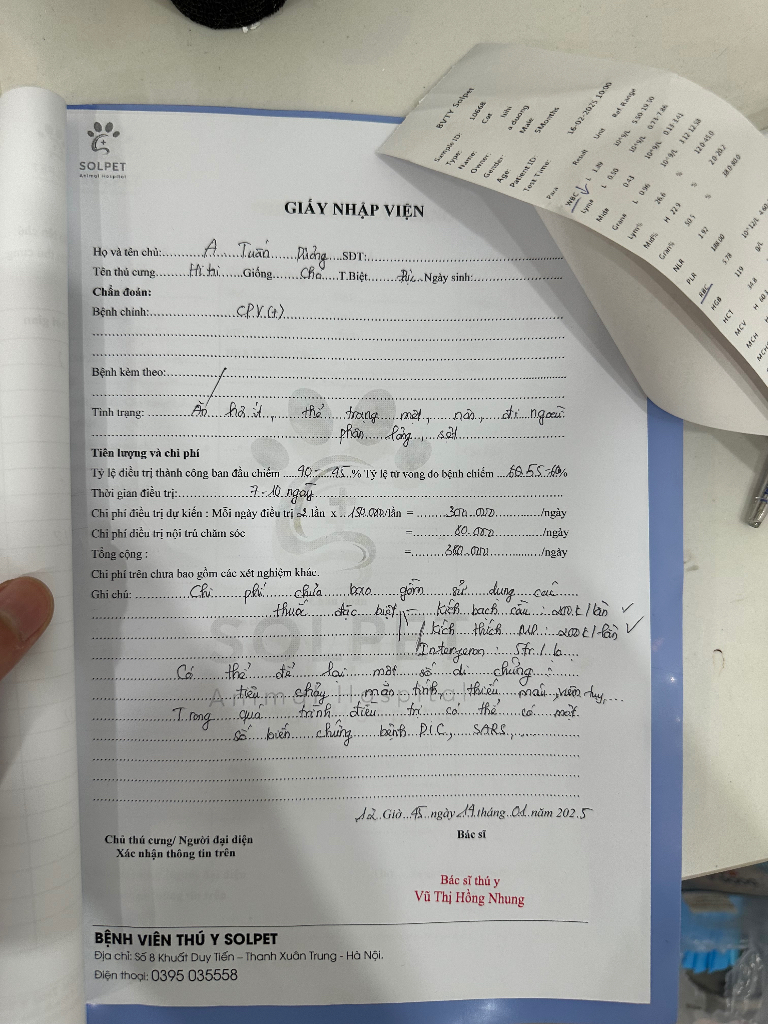 SOLPET
Animal Hospital
GIẤY NHẬP VIỆN
Họ và tên chủ: A Tuấn Dũng SĐT:
Tên thú cưng Hi hi Giống Chó T.Biệt Đực Ngày sinh:
Chẩn đoán:
Bệnh chính: CPV (+)
Bệnh kèm theo: /
Tình trạng: Ăn ít, thể trạng mệt, nôn, đi ngoài
phân lỏng, sốt
Tiên lượng và chi phí
Tỷ lệ điều trị thành công ban đầu chiếm 40 - 45 % Tỷ lệ tử vong do bệnh chiếm 55-60%
Thời gian điều trị: 7-10 ngày
Chi phí điều trị dự kiến : Mỗi ngày điều trị 2 lần x 150.000/lần = 300.000/ngày
Chi phí điều trị nội trú chăm sóc = 80.000/ngày
Tổng cộng : = 380.000/ngày
Chi phí trên chưa bao gồm các xét nghiệm khác.
Ghi chú: Chi phí chưa bao gồm sử dụng các
thuốc đặc biệt - kích bạch cầu : 200k/lần ✓
kích thích : 200k/lần ✓
: 5tr/lọ
Có thể để lại một số di chứng :
tiêu chảy mãn tính, thiếu máu, viêm tụy,...
Trong quá trình điều trị có thể có một
số biến chứng bệnh DIC, SARS,...
12 Giờ 45 ngày 19 tháng 01 năm 2025
Chủ thú cưng/ Người đại diện
Xác nhận thông tin trên
Bác sĩ
Bác sĩ thú y
Vũ Thị Hồng Nhung
BỆNH VIỆN THÚ Y SOLPET
Địa chỉ: Số 8 Khuất Duy Tiến – Thanh Xuân Trung - Hà Nội.
Điện thoại: 0395 035558
BVTY Solpet
Sample ID: 10668
Type: Cat
Name: Nhi
Owner: a duong
Gender: Male
Age 5Months
Patient ID:
Test Time: 16-02-2025 10:00
Para Result Unit Ref Range
WBC L 1.89 10^9/L 5.50-19.50
Lym# L 0.50 10^9/L 0.73-7.86
Mid# 0.43 10^9/L 0.13-3.41
Gran# L 0.96 10^9/L 3.12-12.58
Lym% 26.6 % 12.0-45.0
Mid% H 22.9 % 2.0-20.2
Gran% 50.5 % 38.0-80.0
NLR 1.92
PLR 188.00
RBC 5.78 10^12/L 4.60
HGB 119 g/L
HCT 34.8
MCV H 60.3
MCH
MCHC